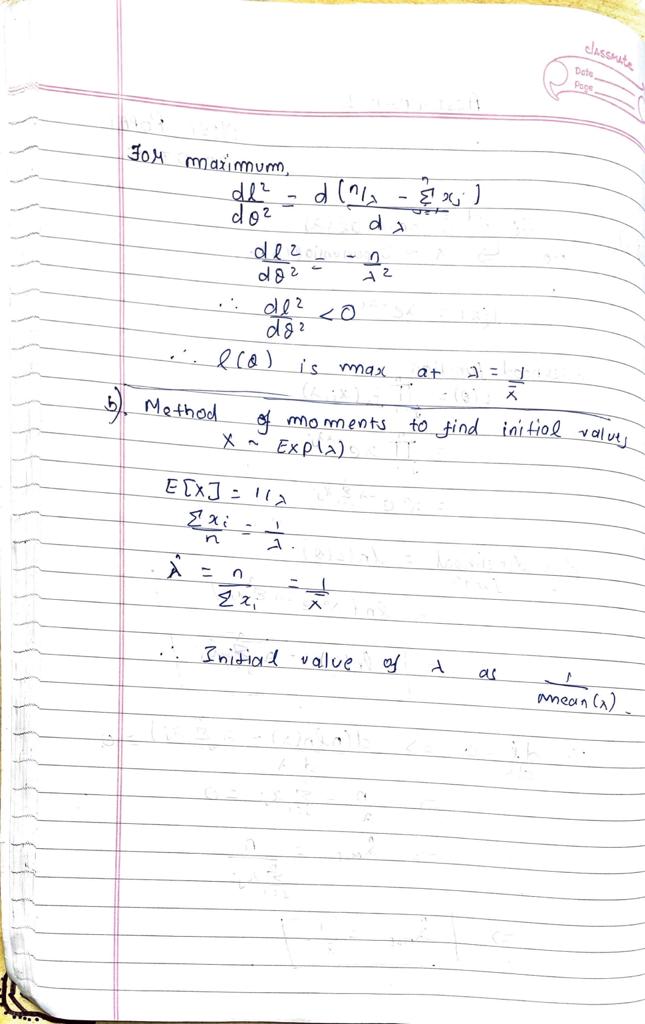 classmate
Date
Page
For maximum,
dl²/dθ² = d(n/λ - Σⁿ xᵢ)/dλ
dl²/dθ² = -n/λ²
∴ dl²/dθ² < 0
∴ l(θ) is max at λ = 1/x̄
b). Method of moments to find initial values
X ~ Exp(λ)
E[X] = 1/λ
Σxᵢ/n = 1/λ.
λ̂ = n/Σxᵢ = 1/x̄
∴ Initial value of λ as 1/mean(λ).